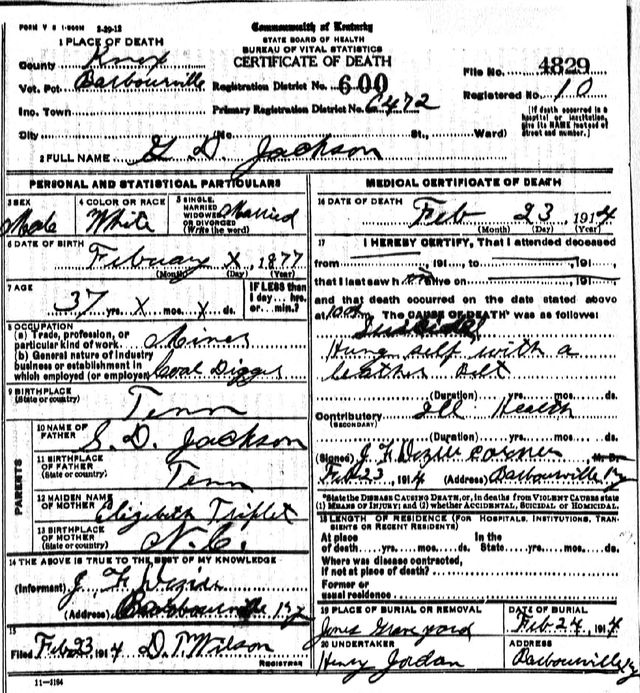 FORM V S 1-500M 3-29-12
Commonwealth of Kentucky
STATE BOARD OF HEALTH
BUREAU OF VITAL STATISTICS
CERTIFICATE OF DEATH
1 PLACE OF DEATH
County Knox
Vot. Pct. Barbourville
Registration District No. 600
File No. 4829
Inc. Town
Primary Registration District No. 6472
Registered No. 10
City (No. St., Ward)
(If death occurred in a hospital or institution, give its NAME instead of street and number.)
2 FULL NAME G D. Jackson
PERSONAL AND STATISTICAL PARTICULARS
3 SEX Male
4 COLOR OR RACE White
5 SINGLE, MARRIED WIDOWED OR DIVORCED (Write the word) Married
6 DATE OF BIRTH February X, 1877
(Month) (Day) (Year)
7 AGE 37 yrs. X mos. X ds.
IF LESS than 1 day ... hrs. or ... min.?
8 OCCUPATION
(a) Trade, profession, or particular kind of work Miner
(b) General nature of industry business or establishment in which employed (or employer) Coal Digger
9 BIRTHPLACE (State or country) Tenn
PARENTS
10 NAME OF FATHER S. D. Jackson
11 BIRTHPLACE OF FATHER (State or country) Tenn
12 MAIDEN NAME OF MOTHER Elizabeth Triplet
13 BIRTHPLACE OF MOTHER (State or country) N.C.
14 THE ABOVE IS TRUE TO THE BEST OF MY KNOWLEDGE
(Informant) J F
(Address) Barbourville Ky
15
Filed Feb 23, 1914 D. T. Wilson
REGISTRAR
11-5194
MEDICAL CERTIFICATE OF DEATH
16 DATE OF DEATH Feb 23 1914
(Month) (Day) (Year)
17 I HEREBY CERTIFY, That I attended deceased
from , 191 , to , 191 ,
that I last saw h alive on , 191 ,
and that death occurred on the date stated above
at m. The CAUSE OF DEATH* was as follows:
Suicidal
Hung self with a
leather Belt
(Duration) yrs. mos. ds.
Contributory Ill Health
(SECONDARY)
(Duration) yrs. mos. ds.
(Signed) J F coroner M. D.
Feb 23, 1914 (Address) Barbourville Ky
*State the DISEASE CAUSING DEATH, or, in deaths from VIOLENT CAUSES state (1) MEANS OF INJURY; and (2) whether ACCIDENTAL, SUICIDAL OR HOMICIDAL.
18 LENGTH OF RESIDENCE (FOR HOSPITALS, INSTITUTIONS, TRANSIENTS OR RECENT RESIDENTS)
At place of death yrs. mos. ds. In the State yrs. mos. ds.
Where was disease contracted, if not at place of death?
Former or usual residence
19 PLACE OF BURIAL OR REMOVAL Jones Grave yard
DATE OF BURIAL Feb 24, 1914
20 UNDERTAKER Henry Jordan
ADDRESS Barbourville Ky